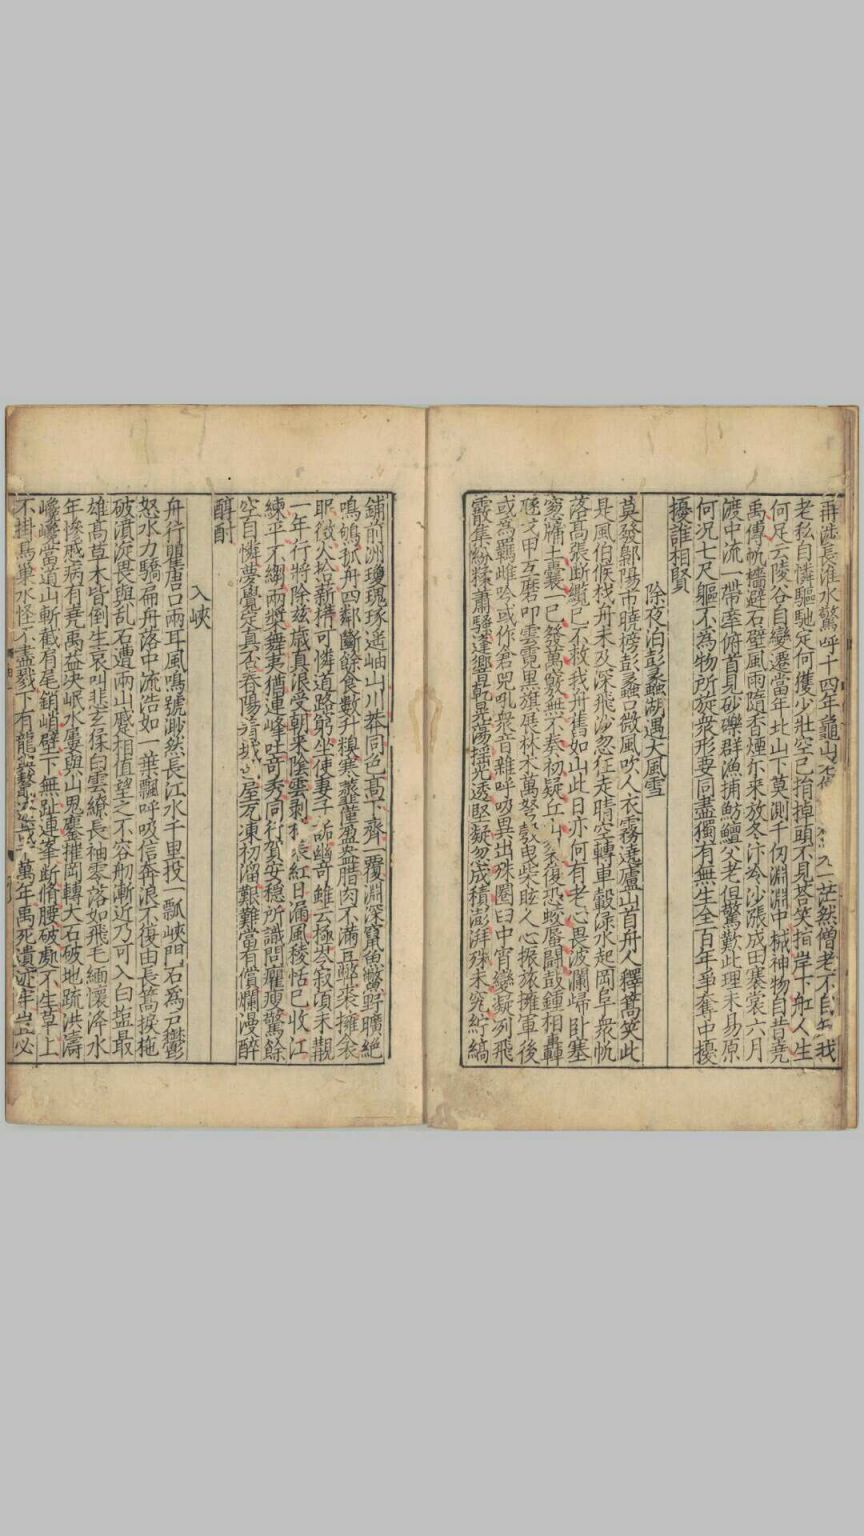 再涉長淮水驚呼十四年龜山不茫然僧老不自我
老私自憐驅馳定何獲少壯空已捐掉頭不見荅笑指岸下舡人生
何足云陵谷自變遷當年此山下莫測千仞淵淵中械神物自昔堯
禹傳帆檣避石壁風雨隨香煙尓來放冬汴冷沙漲成田褰裳六月
渡中流一帶牽俯首見砂礫群漁捕魴鱣父老但驚歎此理未易原
何況七尺軀不為物所旋衆形要同盡獨有無生全百年爭奪中擾
擾誰相賢
除夜泊彭蠡湖遇大風雪
莫發鄡陽市曉榜彭蠡口微風吹人衣霧遶廬山首舟人釋篙笑此
是風伯候杙舟未及深飛沙忽狂走晴空轉車轂渌水起岡阜衆帆
落高張斷纜已不救我舟舊如山此日亦何有老心畏波瀾歸卧塞
窓牖土囊一已發萬竅無不奏初疑丘山裂復恐蛟蜃鬪鼓鍾相轟
豗戈甲互磨叩雲霓黒旗展林木萬弩彀曳柴眩人心振旅擁軍後
或為羈雌吟或作倉兕吼衆音雜呼吸異出殊圏臼中宵變凝冽飛
霰集紛糅蕭騷蓬響乾晃蕩摇光透堅凝忽成積澎湃殊未究紵縞
鋪前洲瓊瑰琢遥岫山川莽同色高下齊一覆淵深竄魚鼈野曠絶
鳴鵮孤舟四鄰斷餘食數升糗寒虀僅盈盎腊肉不滿豆弊裘擁衾
眠微火拾薪槱可憐道路窮坐使妻子詬幽奇雖云極岑寂頃未覯
一年行將除兹歲真浪受朝來陰雲剥林表紅日漏風稜恬已收江
練平不縐兩槳舞夷猶連峰吐奇秀同行賀安穩所識問癯瘦驚餘
空自憐夢覺定真否春陽著城屋瓦凍初溜艱難當有償爛漫醉
醇酎
入峽
舟行瞿唐口兩耳風鳴號渺然長江水千里投一瓢峽門石為户鬱
怒水力驕扁舟落中流浩如一葉飄呼吸信奔浪不復由長篙捩柂
破濆漩畏與乱石遭兩山蹙相值望之不容舠漸近乃可入白塩最
雄高草木皆倒生哀叫悲玄猱白雲繚長袖零落如飛毛緬懷洚水
年慘戚病有堯禹益決岷水屢與山鬼鏖摧岡轉大石破地疏洪濤
巉巉當道山斬截有尾銷峭壁下無趾連峯斷脩腰破處不生草上
不掛鳥巢水怪不盡戮下有龍萬年禹死遺迹牢豈必